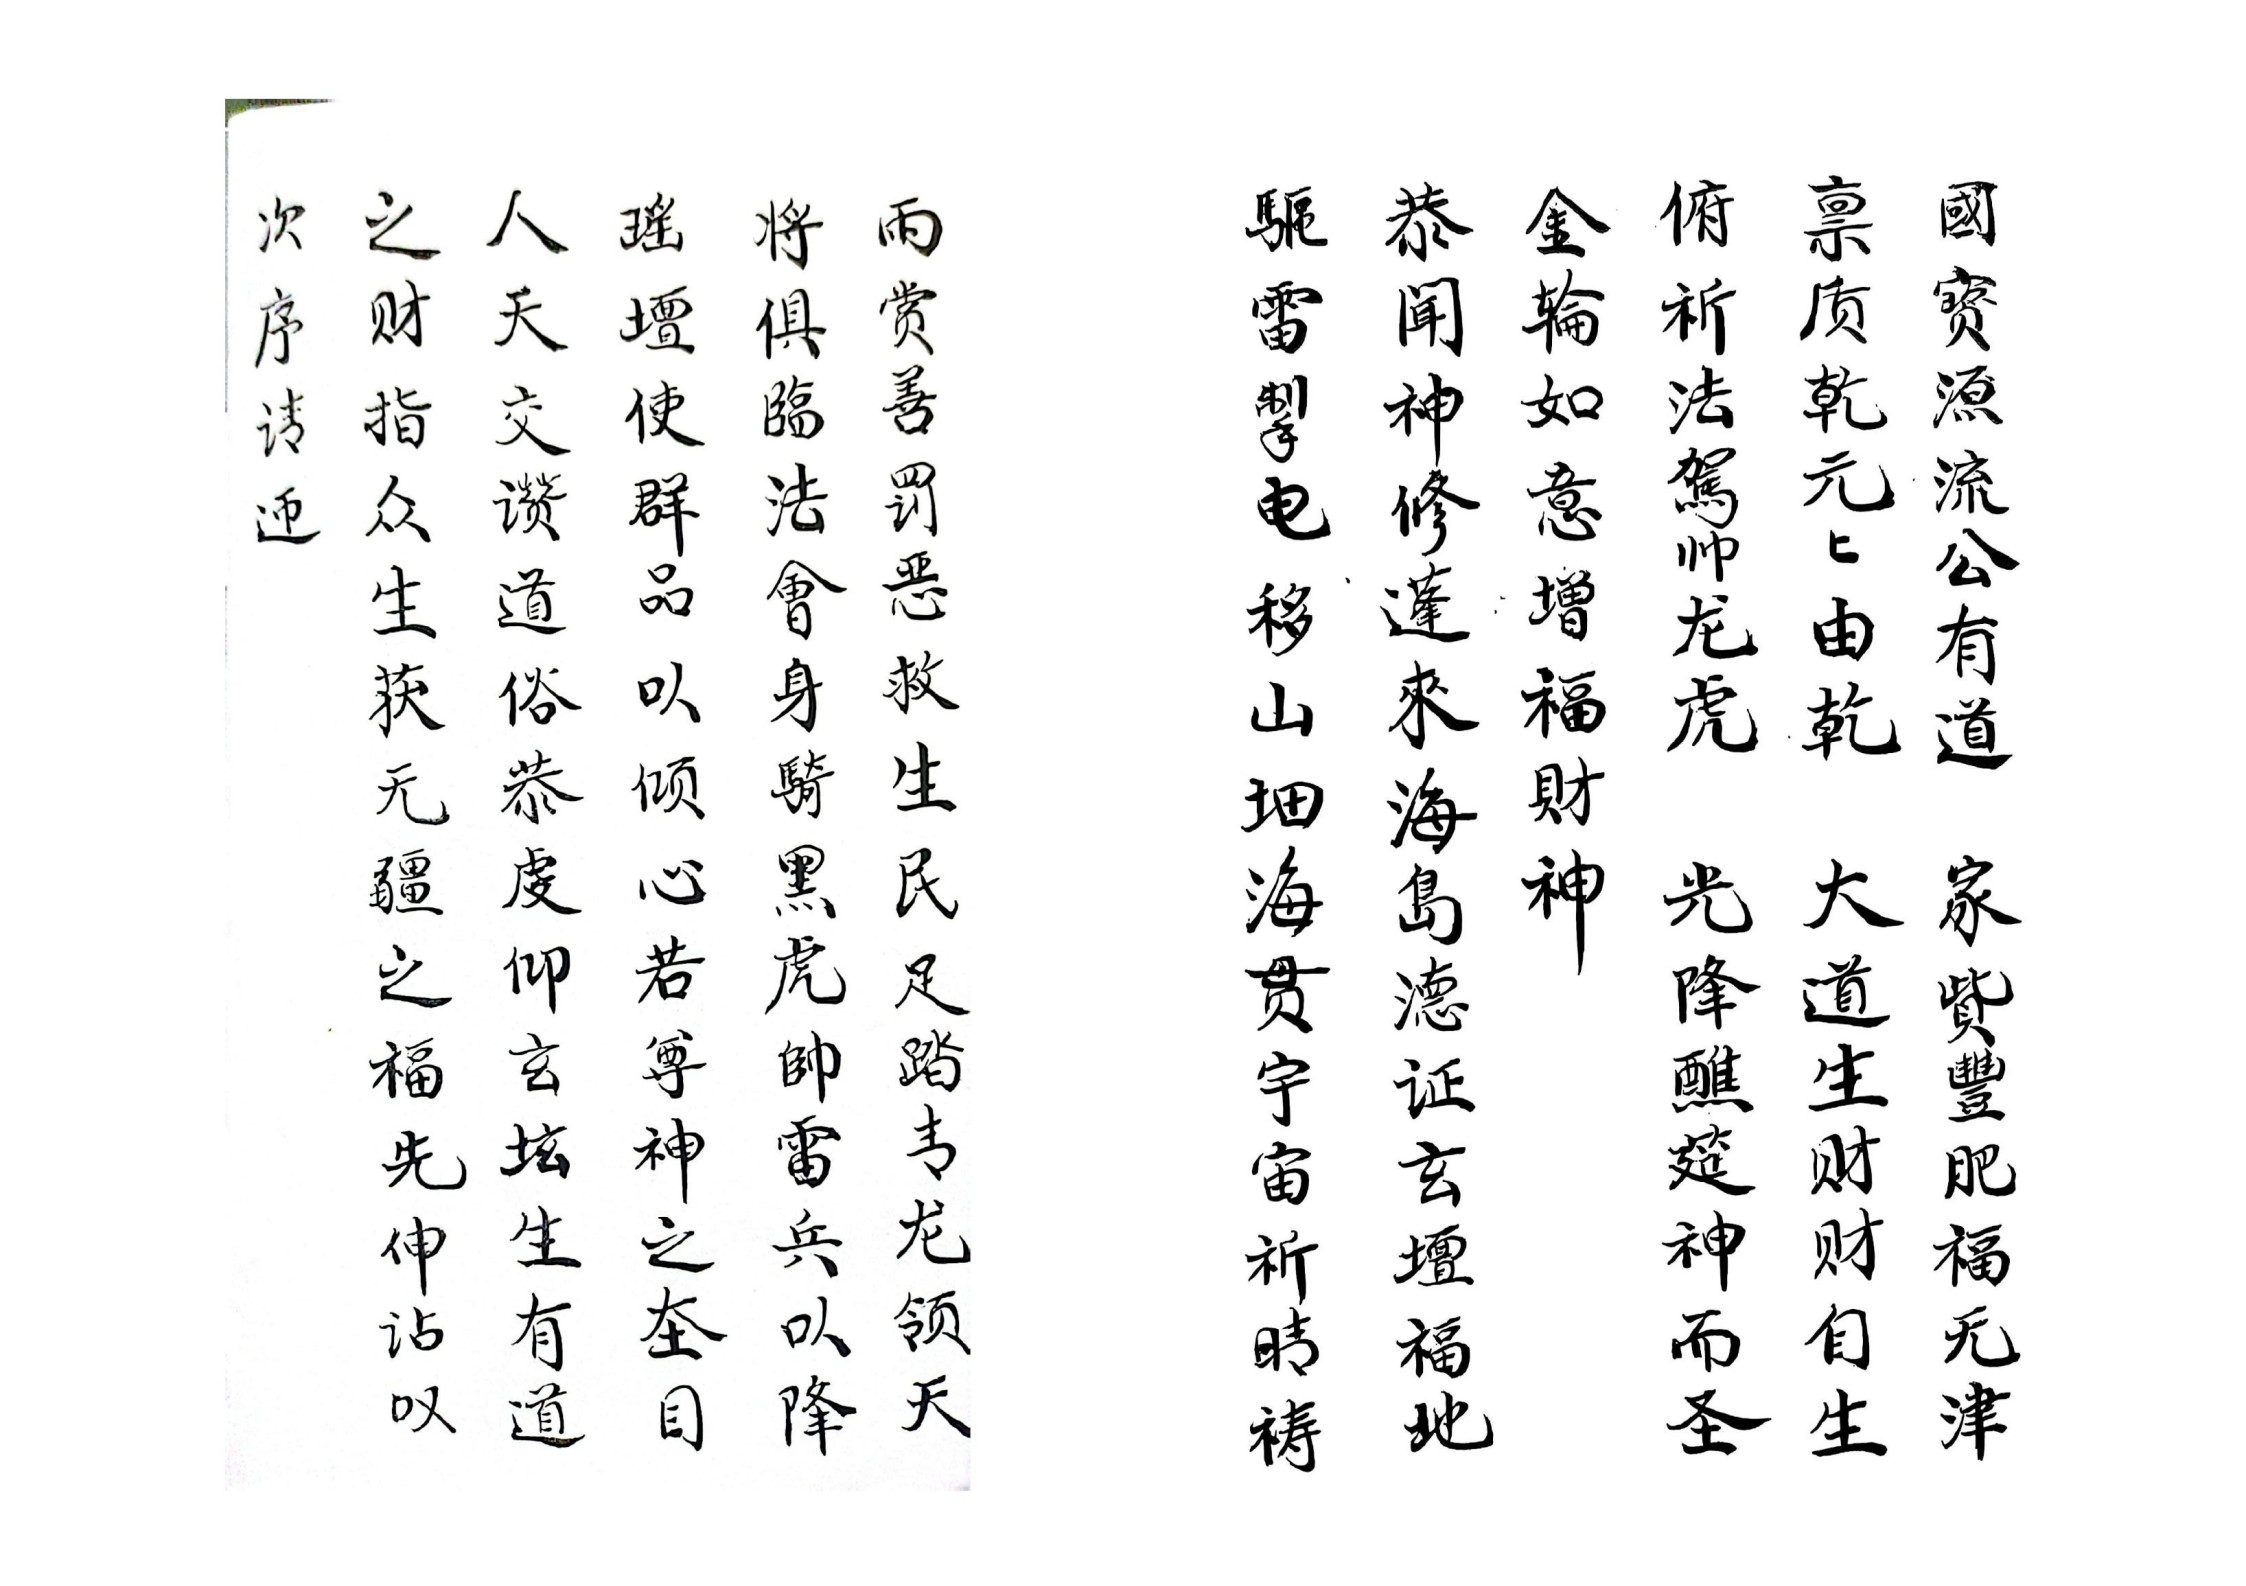 國寳源流公有道　家貲豐肥福无津
禀质乾元㆑由乾　大道生财财自生
俯祈法駕帅龙虎　光降醮筵神而圣
金輪如意增福財神
恭闻神修蓬來海島德证玄壇福地
驱雷掣电移山㘰海贯宇宙祈晴祷
雨赏善罚恶救生民足踏青龙领天
将俱臨法會身騎黑虎帥雷兵以降
瑶壇使群品以倾心若尊神之圶目
人天交讃道俗恭虔仰玄坛生有道
之财指众生获无疆之福先伸讠占叹
次序请迎